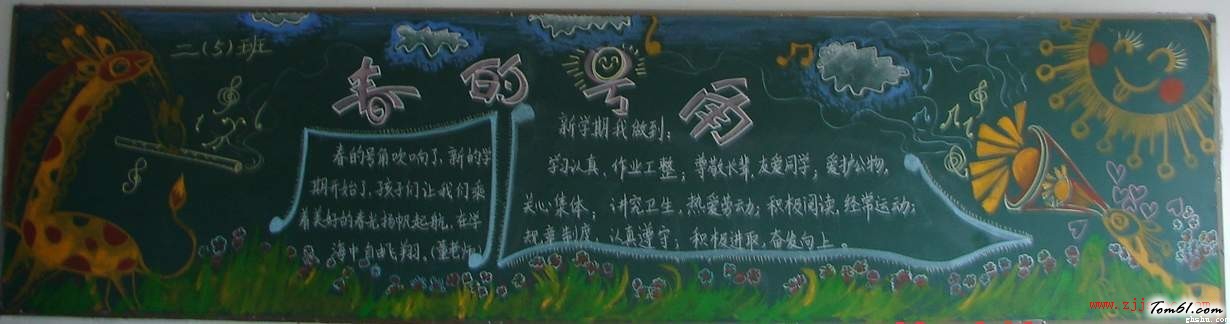 二(5)班
春的号角
春的号角吹响了,新的学
期开始了,孩子们让我们乘
着美好的春光扬帆起航,在学
海中自由飞翔。(董老师)
新学期我做到:
学习认真,作业工整;尊敬长辈,友爱同学;爱护公物,
关心集体;讲究卫生,热爱劳动;积极阅读,经常运动;
规章制度,认真遵守;积极进取,奋发向上。
www.zjj
Tom61.com